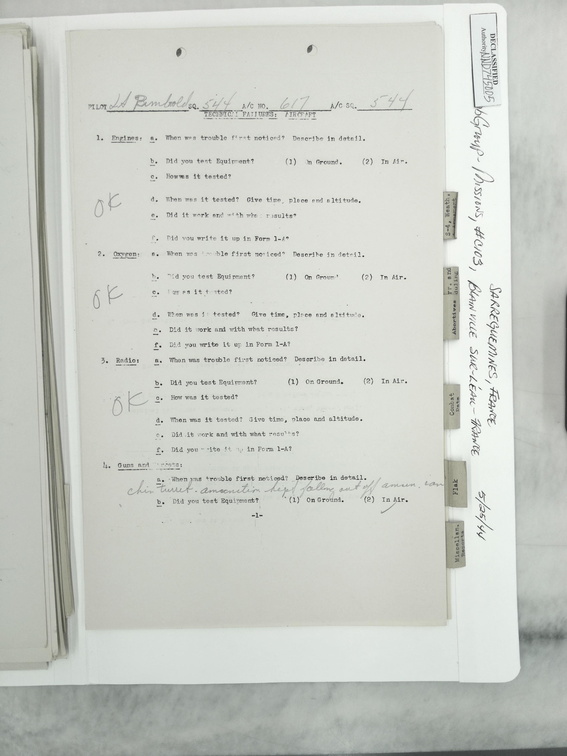 PILOT Lt SQ. 544 A/C NO. 617 A/C SQ. 544
TECHNICAL FAILURES: AIRCRAFT
1. Engines: a. When was trouble first noticed? Describe in detail.
b. Did you test Equipment? (1) On Ground. (2) In Air.
c. How was it tested?
OK
d. When was it tested? Give time, place and altitude.
e. Did it work and with what results?
f. Did you write it up in Form 1-A?
2. Oxygen: a. When was trouble first noticed? Describe in detail.
b. Did you test Equipment? (1) On Ground (2) In Air.
OK
c. How was it tested?
d. When was it tested? Give time, place and altitude.
e. Did it work and with what results?
f. Did you write it up in Form 1-A?
3. Radio: a. When was trouble first noticed? Describe in detail.
b. Did you test Equipment? (1) On Ground. (2) In Air.
OK
c. How was it tested?
d. When was it tested? Give time, place and altitude.
e. Did it work and with what results?
f. Did you write it up in Form 1-A?
4. Guns and
a. When was trouble first noticed? Describe in detail.
chin turret - ammunition kept falling out off
b. Did you test Equipment? (1) On Ground. (2) In Air.
-1-
DECLASSIFIED
Authority NND745005
Group - Missions, #C103, Blainville Sur-L'eau - France
Sarreguemines, France
5/25/44
Combat
Flak